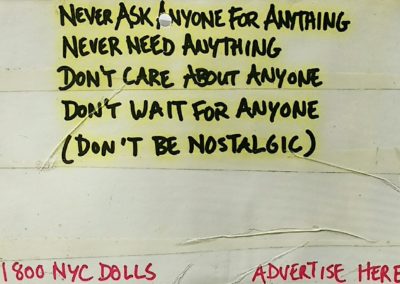 NEVER ASK ANYONE FOR ANYTHING
NEVER NEED ANYTHING
DON'T CARE ABOUT ANYONE
DON'T WAIT FOR ANYONE
(DON'T BE NOSTALGIC)
1800 NYC DOLLS ADVERTISE HERE